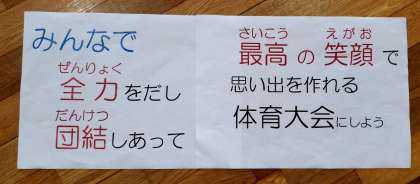 みんなで
ぜんりょく
全力をだし
だんけつ
団結しあって
さいこう えがお
最高の笑顔で
思い出を作れる
体育大会にしよう